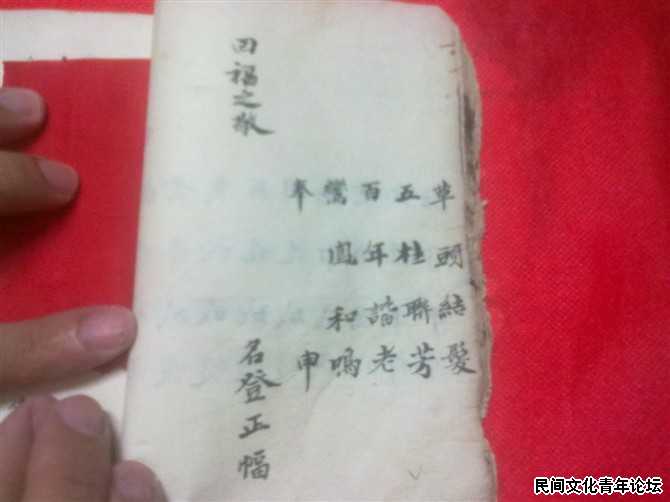 頭結髮
五桂聯芳
百年諧老
鸞鳳和鳴
奉申
福之敬 名登正幅
民间文化青年论坛